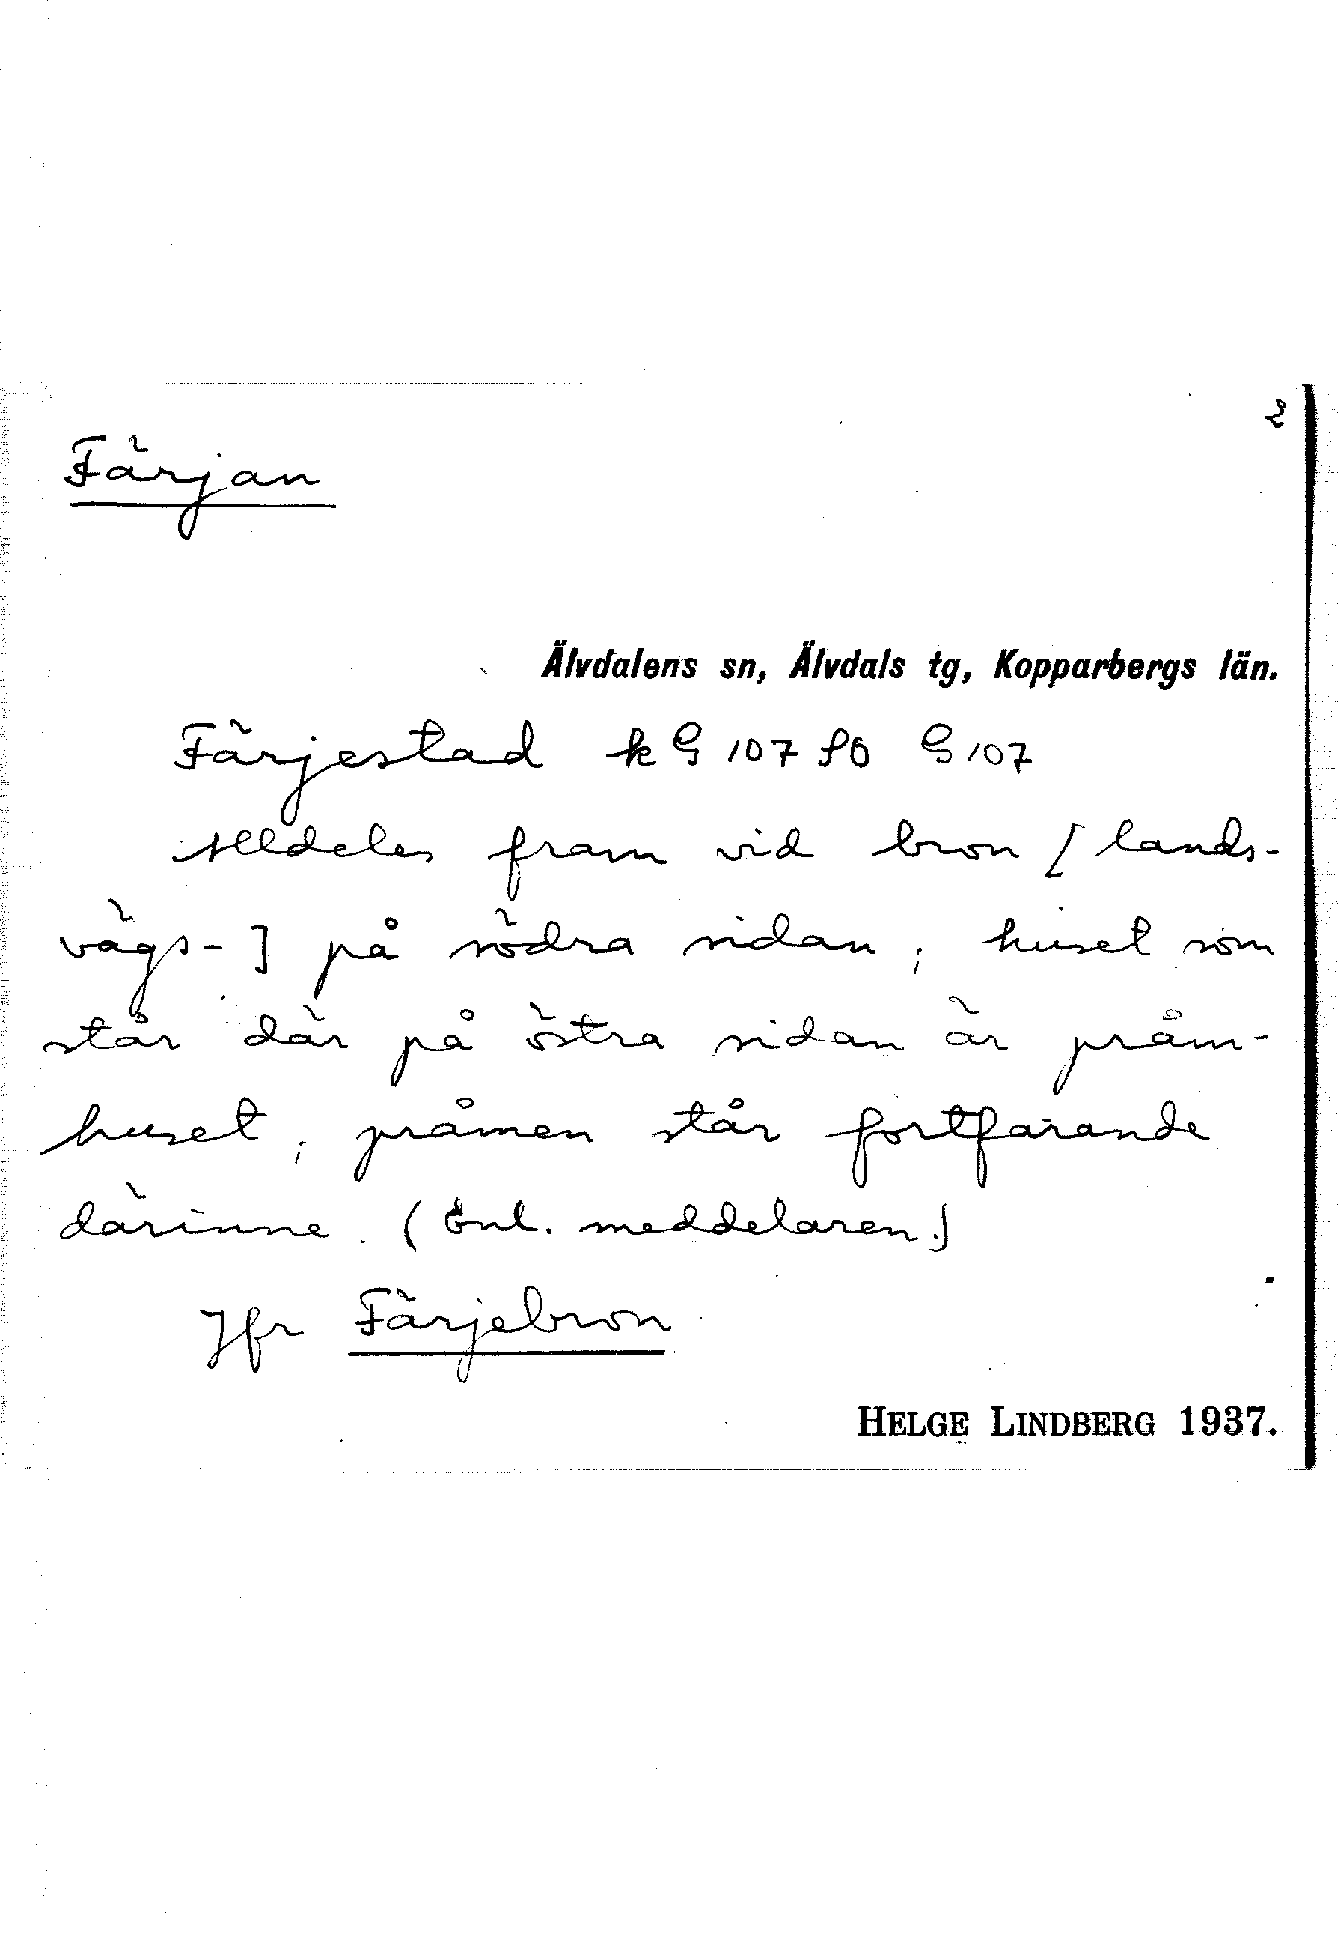 2
Färjan
Älvdalens sn, Älvdals tg, Kopparbergs län.
Färjestad k G 107 SO G 107
Alldeles fram vid bron [lands-
vägs-] på södra sidan; huset som
står där på östra sidan är pråm-
huset; pråmen står fortfarande
därinne. (Enl. meddelaren.)
Jfr Färjebron
HELGE LINDBERG 1937.